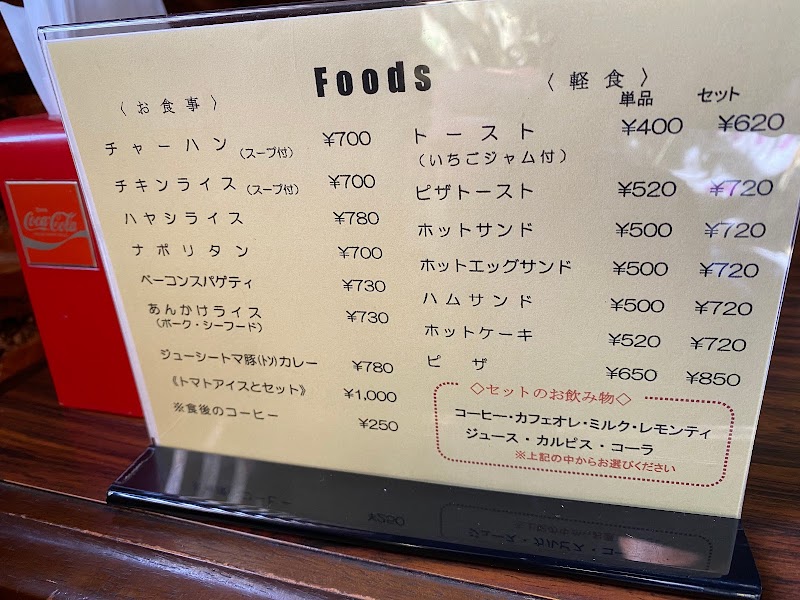 Foods
〈お食事〉
チャーハン (スープ付) ¥700
チキンライス (スープ付) ¥700
ハヤシライス ¥780
ナポリタン ¥700
ベーコンスパゲティ ¥730
あんかけライス ¥730
(ポーク・シーフード)
ジューシートマ豚(トン)カレー ¥780
《トマトアイスとセット》 ¥1,000
※食後のコーヒー ¥250
〈軽食〉
単品 セット
トースト ¥400 ¥620
(いちごジャム付)
ピザトースト ¥520 ¥720
ホットサンド ¥500 ¥720
ホットエッグサンド ¥500 ¥720
ハムサンド ¥500 ¥720
ホットケーキ ¥520 ¥720
ピザ ¥650 ¥850
◇セットのお飲み物◇
コーヒー・カフェオレ・ミルク・レモンティ
ジュース・カルピス・コーラ
※上記の中からお選びください
Coca-Cola